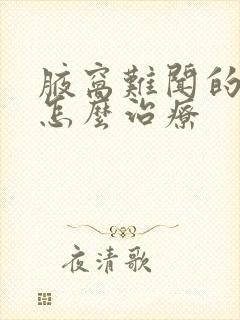 腋窩難聞的
怎麼治療
夜清歌